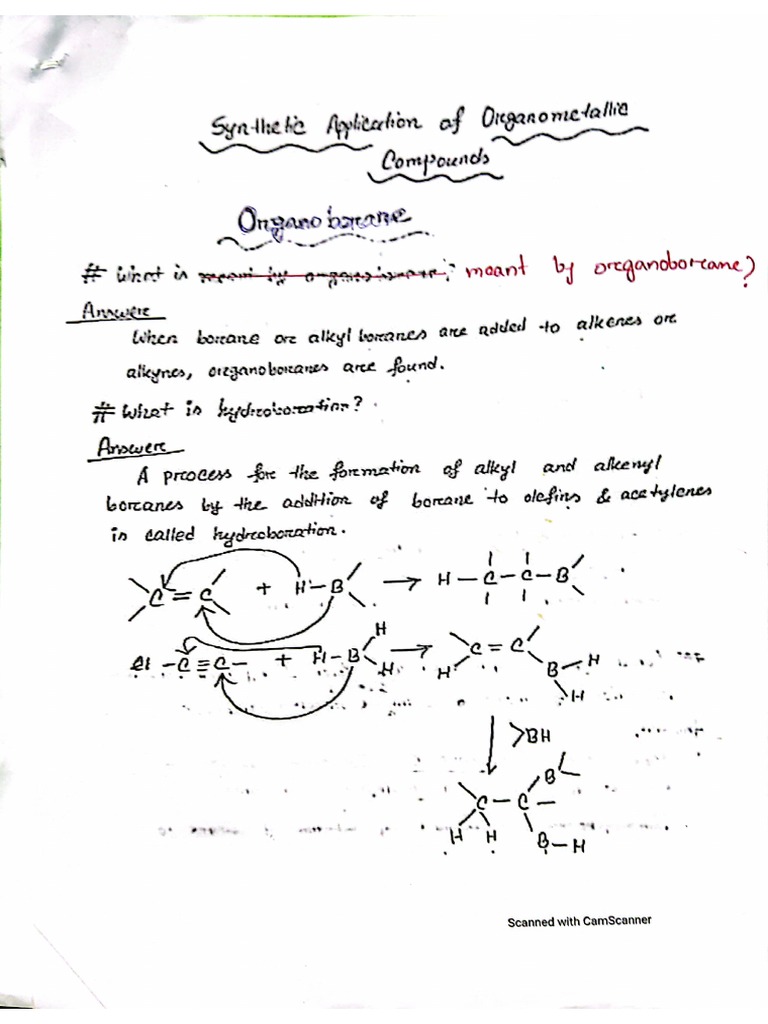 Synthetic Application of Organometallic
Compounds
Organoborane
# What is meant by organoborane? meant by organoborane?
Answer
When borane or alkyl boranes are added to alkenes or
alkynes, organoboranes are found.
# What is hydroboration?
Answer
A process for the formation of alkyl and alkenyl
boranes by the addition of borane to olefins & acetylenes
is called hydroboration.
C = C + H - B → H - C - C - B
H
-C ≡ C- + H - B → C = C
H H B - H
H
>BH
B
C - C -
H H B - H
Scanned with CamScanner